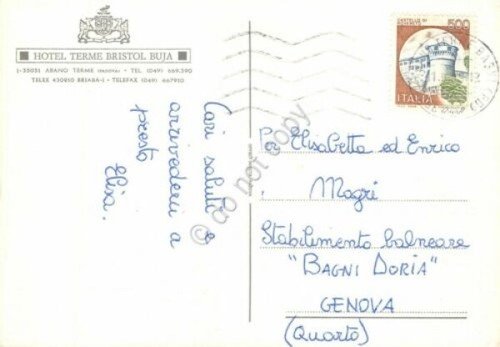 HOTEL TERME BRISTOL BUJA
I-35031 ABANO TERME (PADOVA) - TEL. (049) 669.390
TELEX 430210 BRIABA-I - TELEFAX (049) 667910
Cari saluti e
arrivederci a
presto
Elisa.
500
ITALIA
Per Elisabetta ed Enrico
Magri
Stabilimento balneare
"BAGNI DORIA"
GENOVA
(Quarto)
do not copy